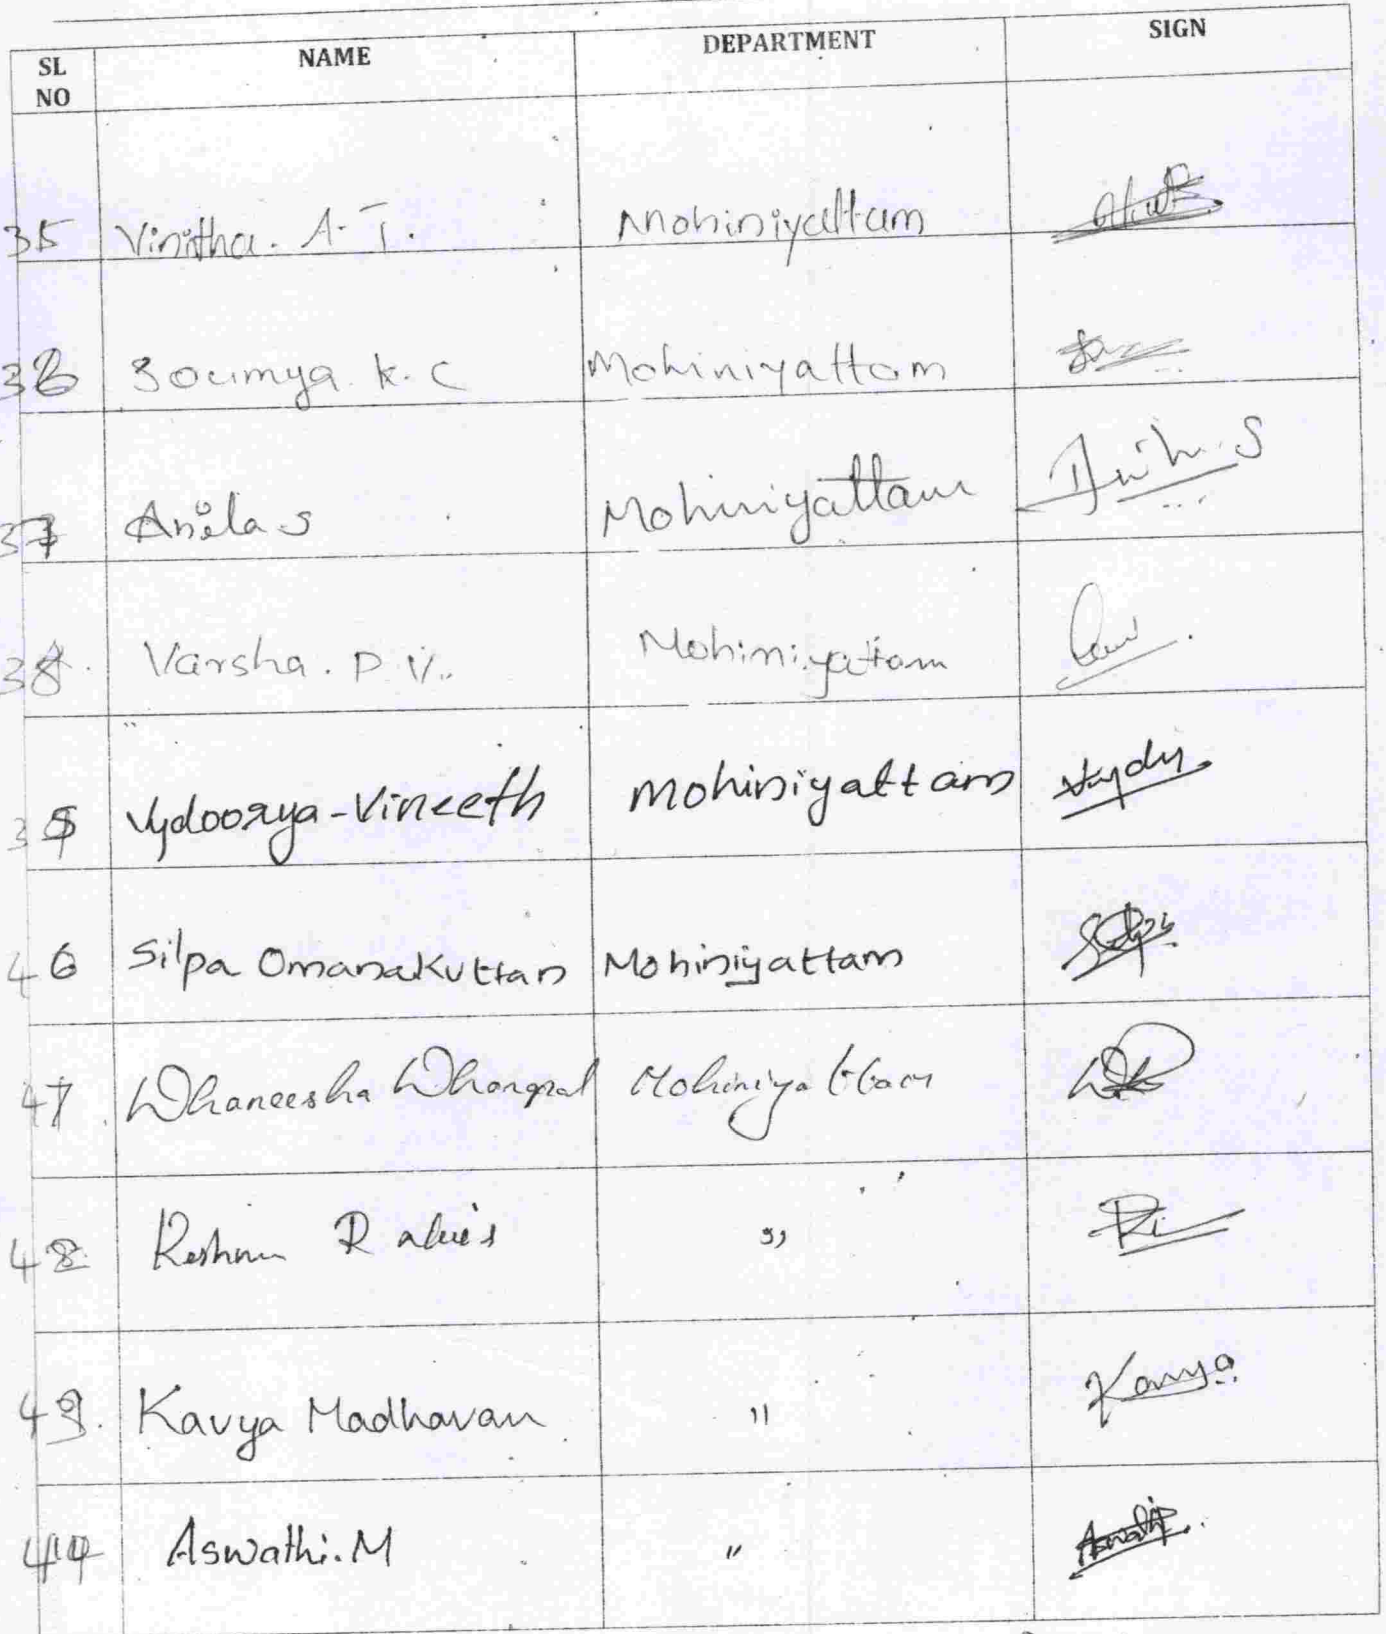 SL NO NAME DEPARTMENT SIGN
35 Vinitha. A. T. Mohiniyattam
36 Soumya. K. C Mohiniyattam
37 Anila S Mohiniyattam
38. Varsha. P. V. Mohiniyattam
Vydoorya-Vineeth Mohiniyattam Vydu
Silpa Omanakuttan Mohiniyattam
Dhaneesha Dhanapal Mohiniyattam
Reshma ,,
Kavya Madhavan " Kavya
44 Aswathi. M "